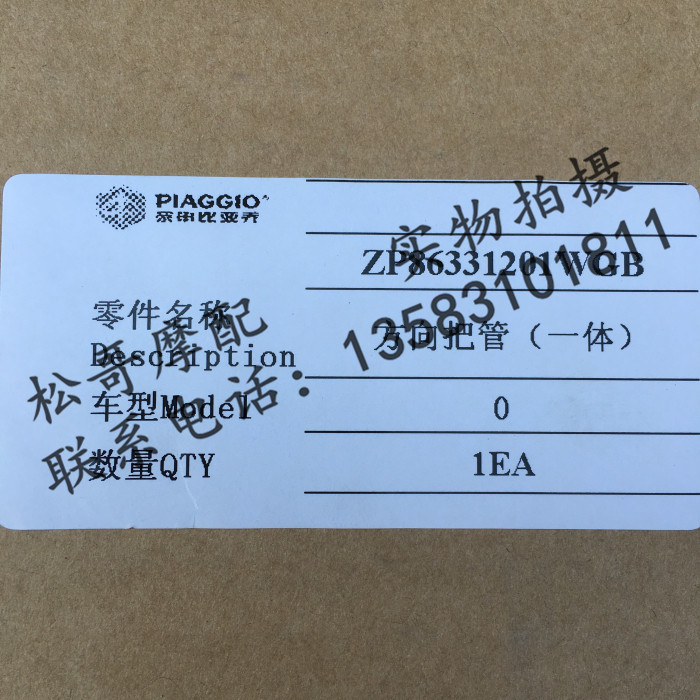 PIAGGIO
宗申比亚乔
ZP86331201WGB
零件名称
Description
方向把管（一体）
车型Model
0
数量QTY
1EA
实物拍摄
松哥摩配
联系电话：13583101811